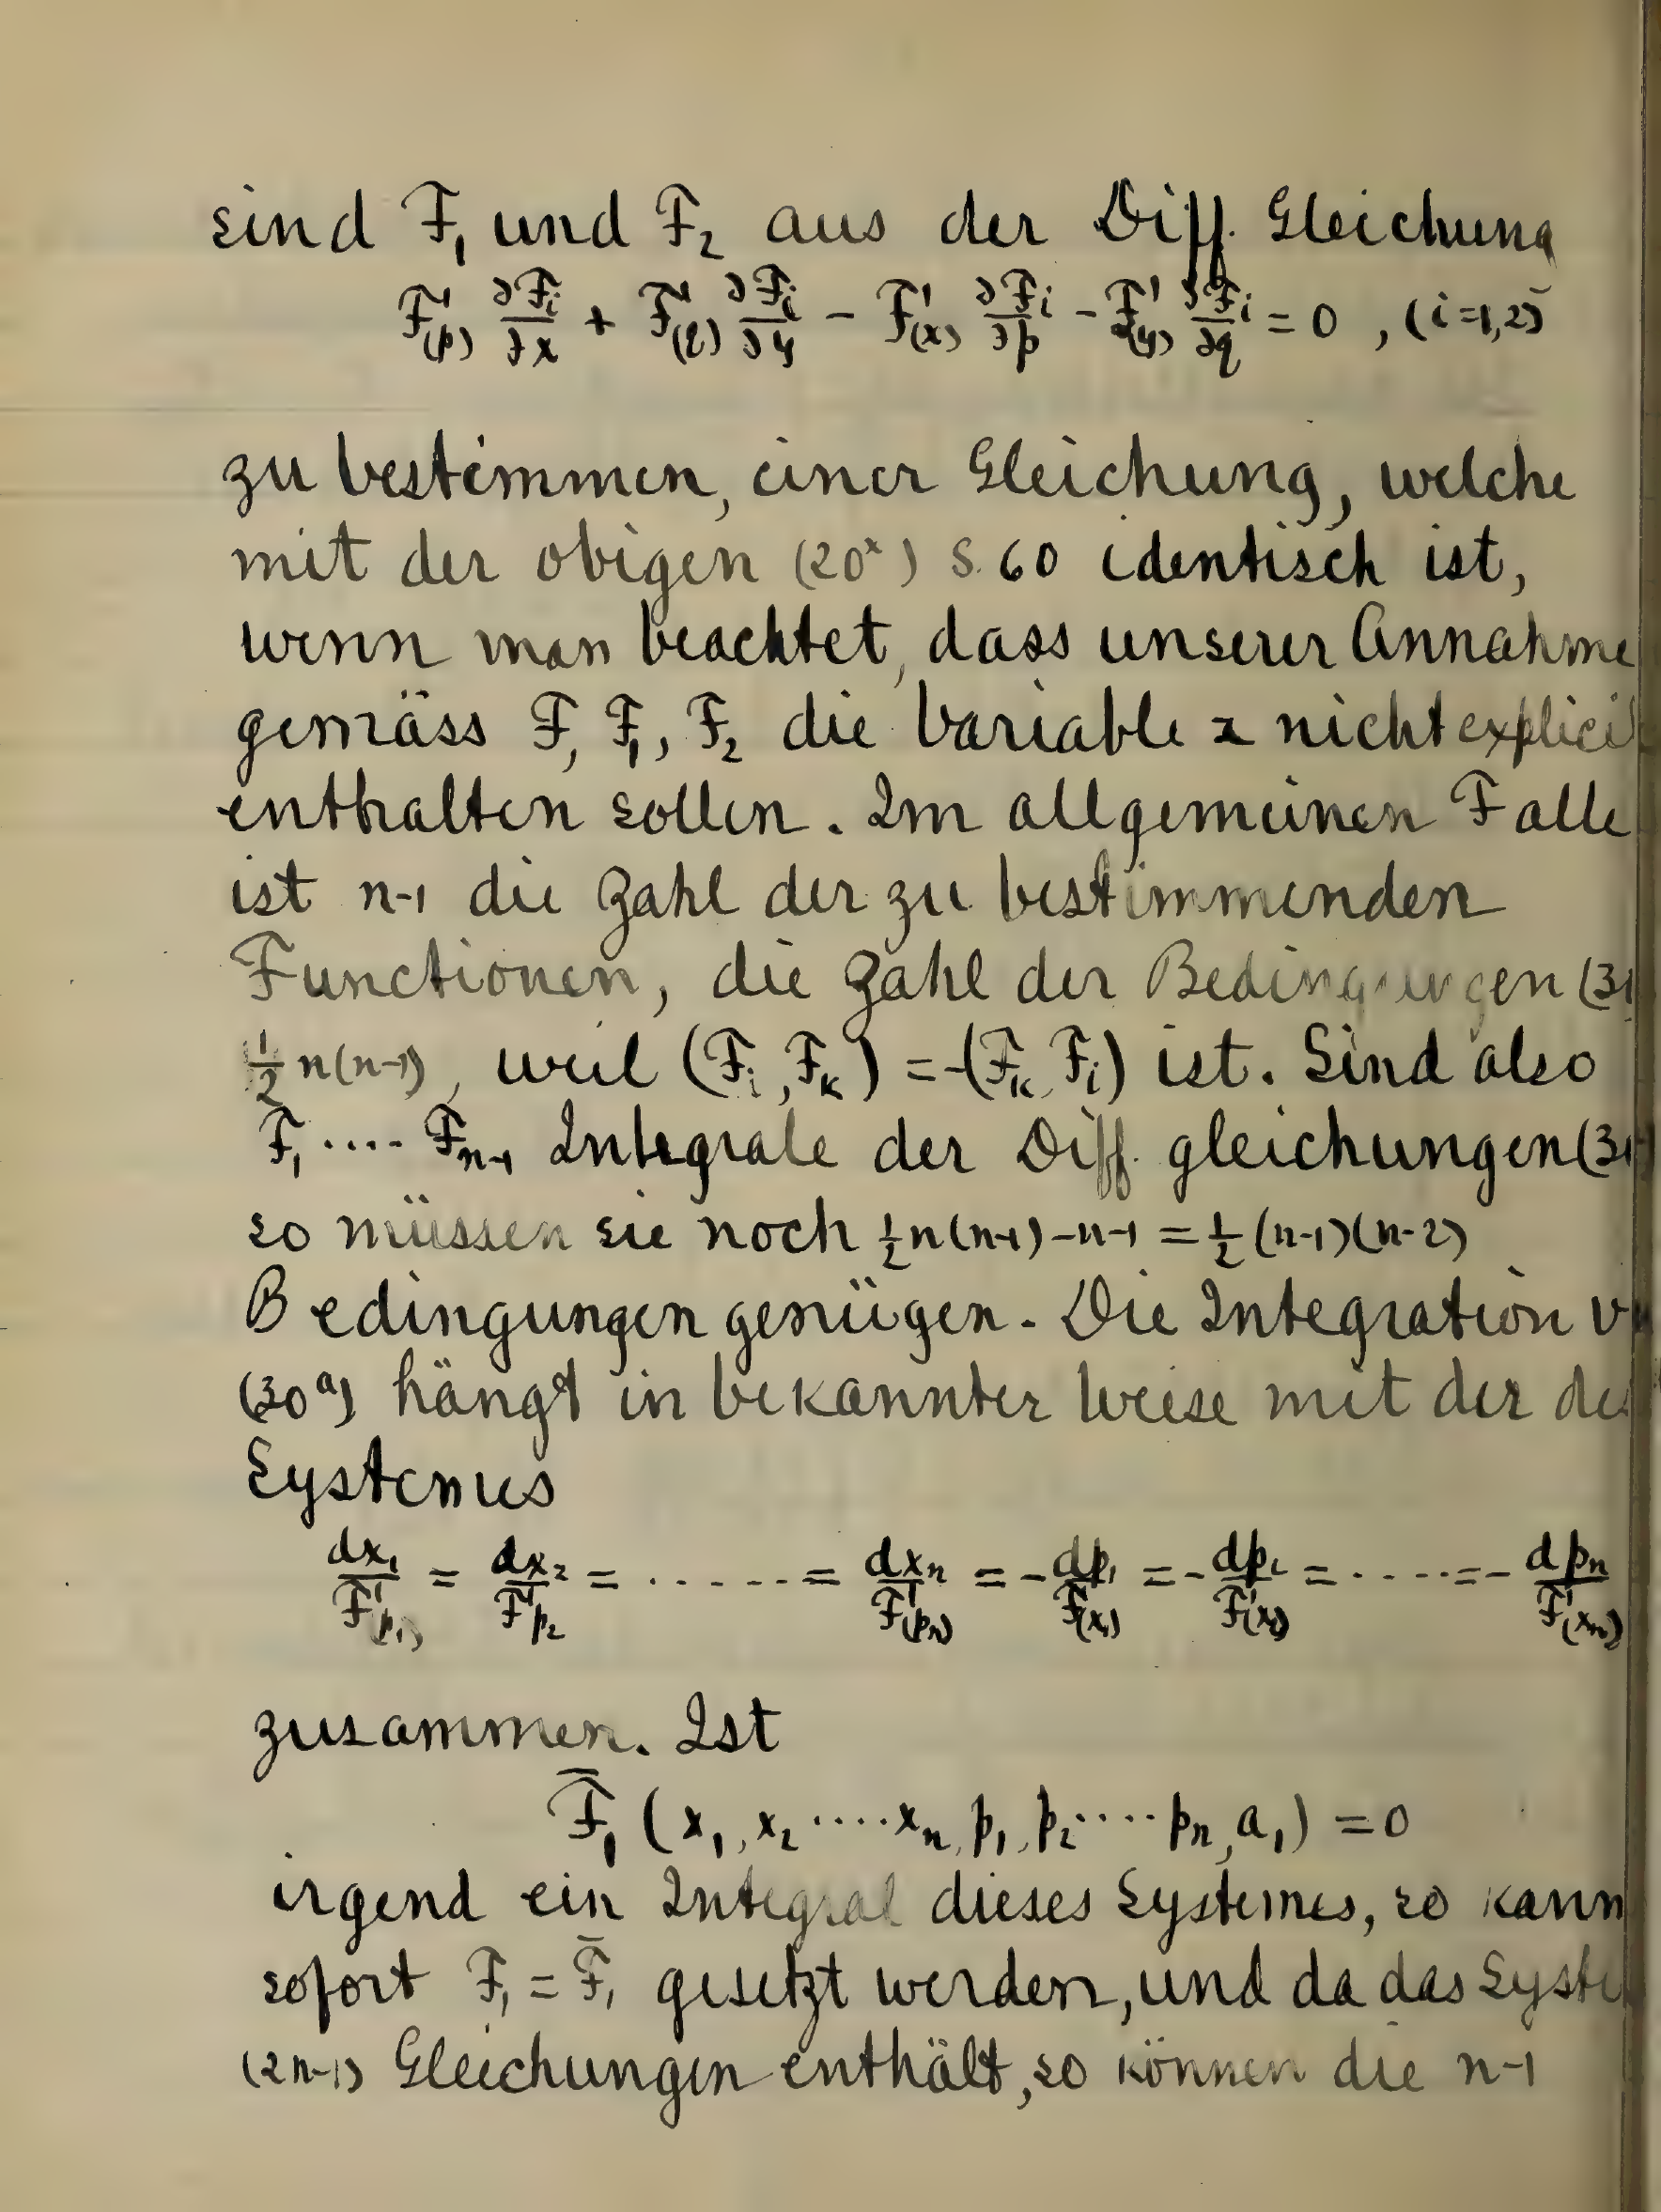 sind F₁ und F₂ aus der Diff. Gleichung
F'(p) ∂Fi/∂x + F'(q) ∂Fi/∂y − F'(x) ∂Fi/∂p − F'(y) ∂Fi/∂q = 0 , (i=1,2)
zu bestimmen, einer Gleichung, welche
mit der obigen (20ˣ) S. 60 identisch ist,
wenn man beachtet, dass unserer Annahme
gemäss F, F₁, F₂ die Variable z nicht explicit
enthalten sollen. Im allgemeinen Falle
ist n-1 die Zahl der zu bestimmenden
Functionen, die Zahl der Bedingungen (3
½ n(n-1), weil (Fi, Fk) = -(Fk, Fi) ist. Sind also
F₁ .... Fn-1 Integrale der Diff. gleichungen (3
so müssen sie noch ½ n(n-1) - n-1 = ½ (n-1)(n-2)
Bedingungen genügen. Die Integration v
(30ᵃ) hängt in bekannter Weise mit der des
Systemes
dx₁/F'(p₁) = dx₂/F'p₂ = ...... = dxn/F'(pn) = - dp₁/F'(x₁) = - dp₂/F'(x₂) = ..... = - dpn/F'(xn)
zusammen. Ist
F̄₁ (x₁, x₂ .... xn, p₁, p₂ .... pn, a₁) = 0
irgend ein Integral dieses Systemes, so kann
sofort F₁ = F̄₁ gesetzt werden, und da das Syste
(2n-1) Gleichungen enthält, so können die n-1